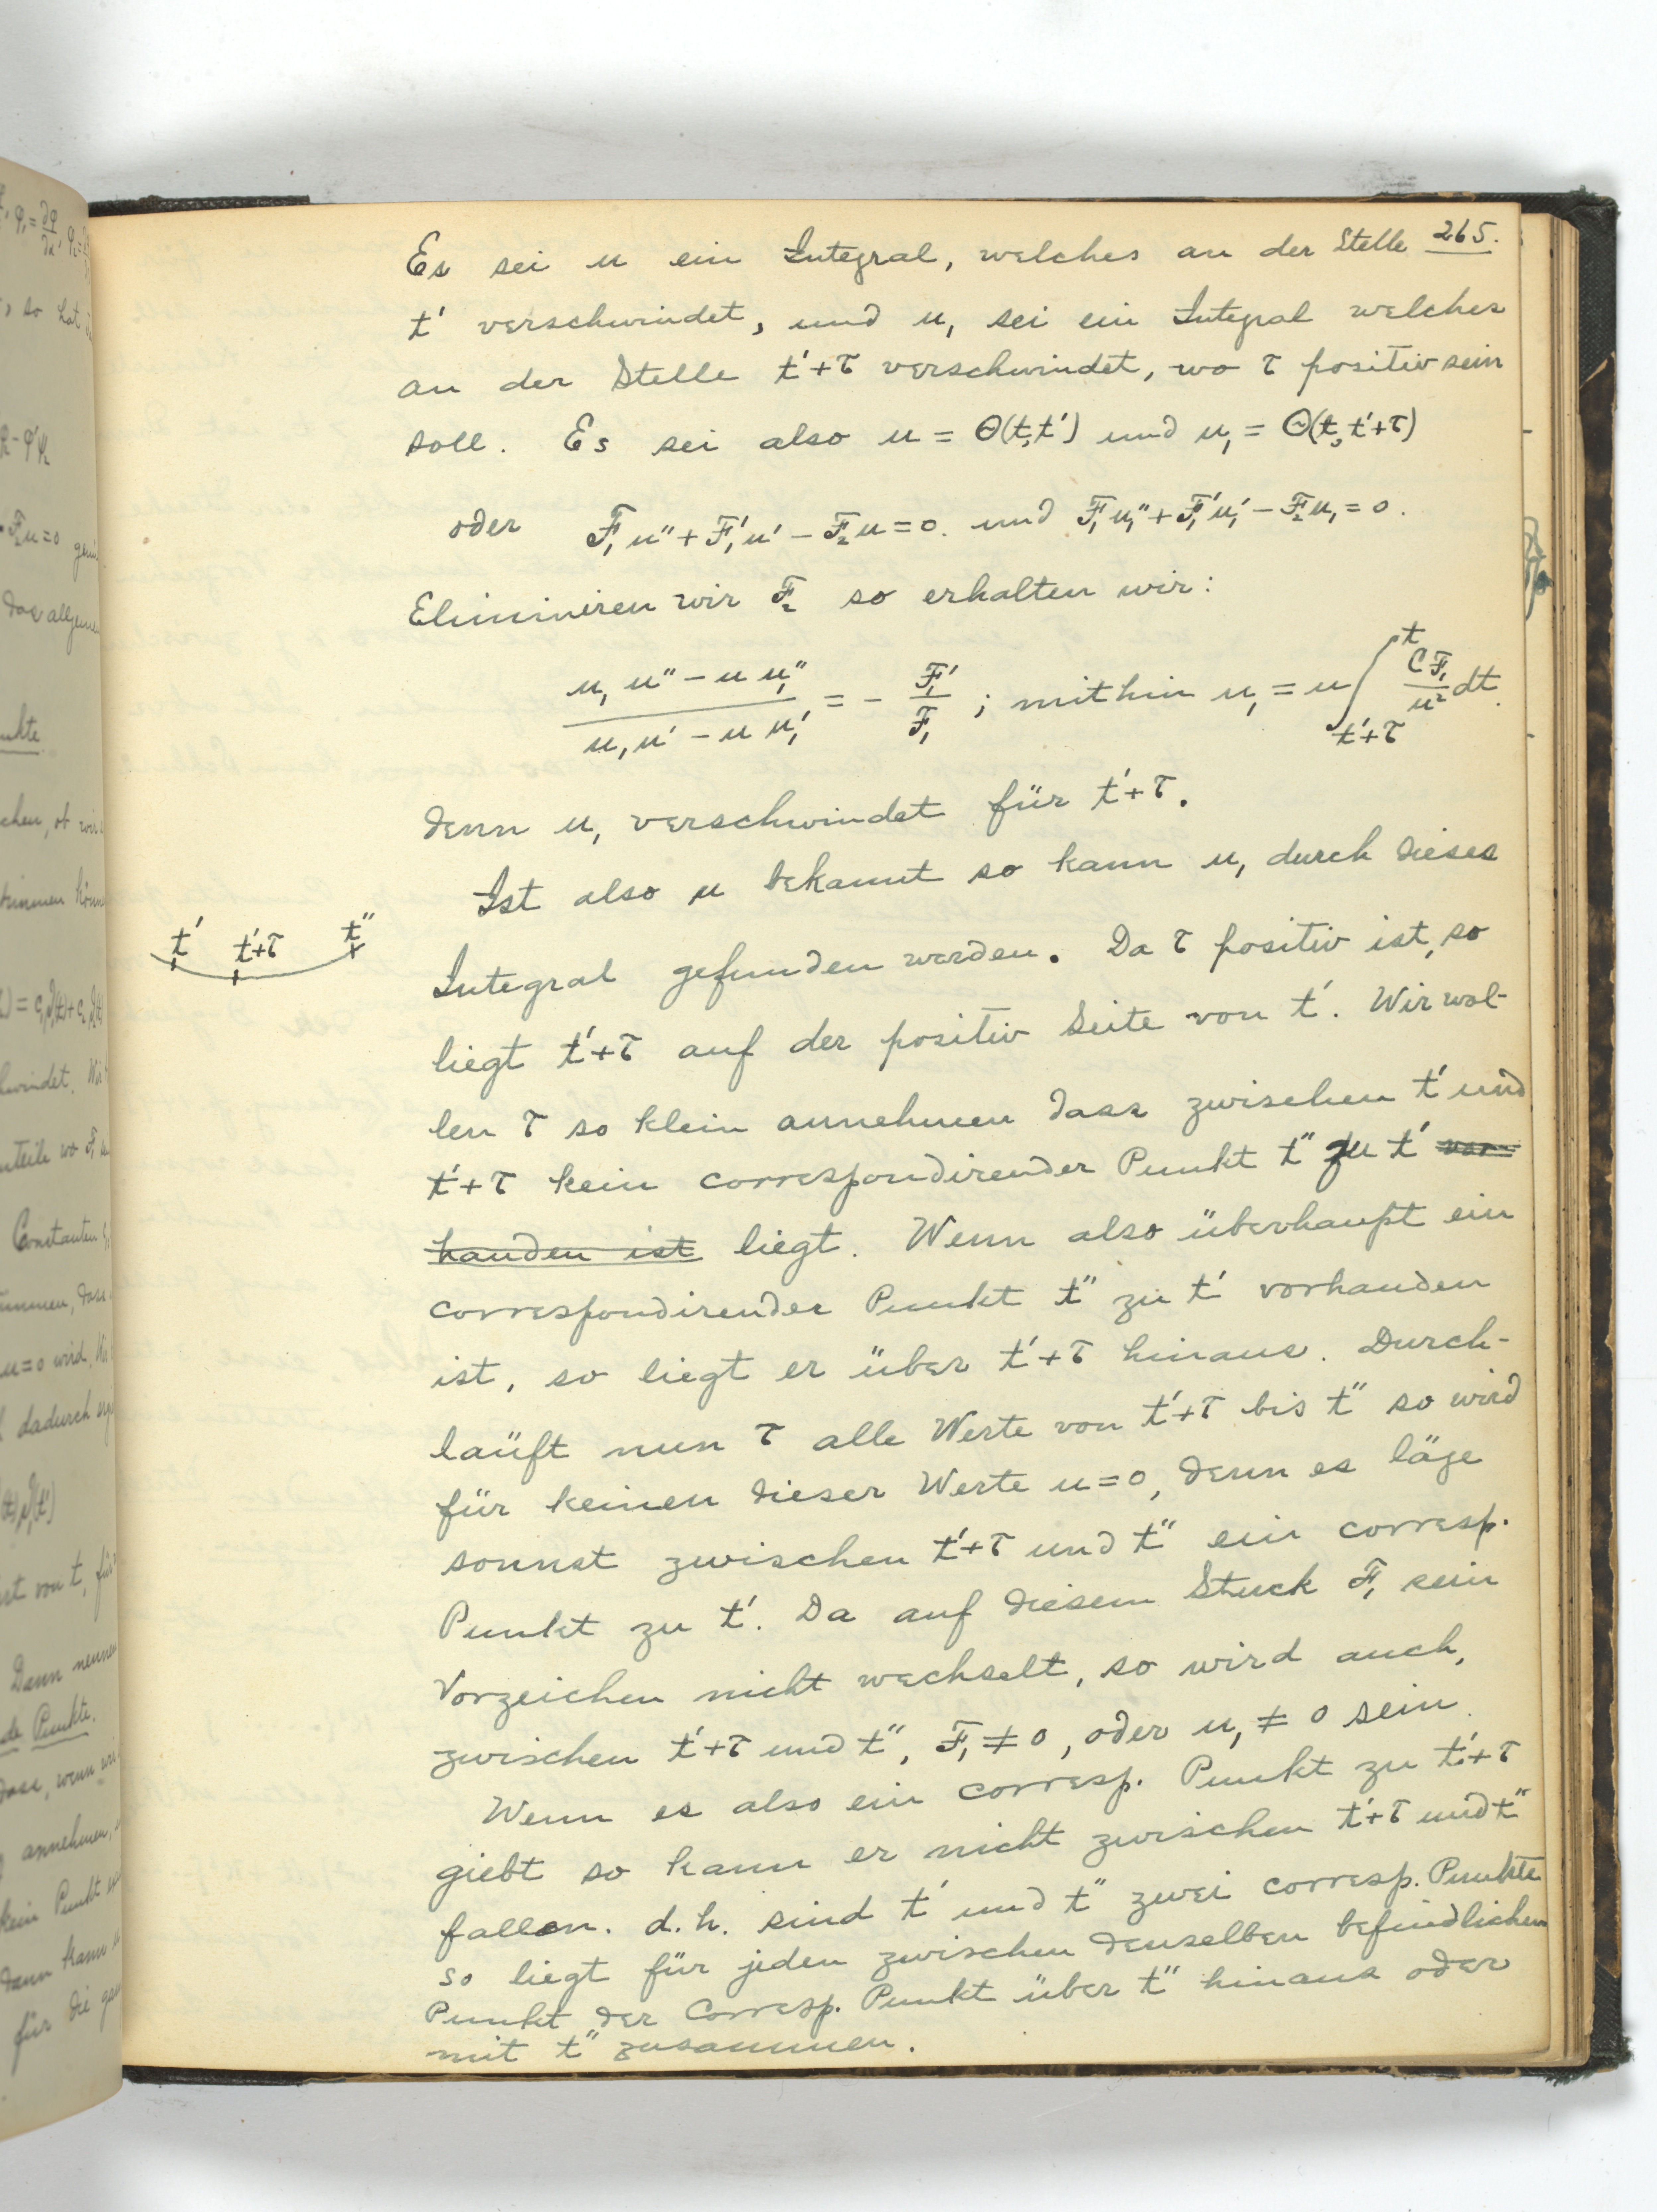 265.
Es sei u ein Integral, welches an der Stelle
t' verschwindet, und u₁ sei ein Integral welches
an der Stelle t'+τ verschwindet, wo τ positiv sein
soll. Es sei also u = Θ(t,t') und u₁ = Θ(t, t'+τ)
oder F₁u''+F₁'u' − F₂u=0. und F₁u₁''+F₁'u₁' − F₂u₁=0.
Eliminiren wir F₂ so erhalten wir:
(u₁u'' − u u₁'')/(u₁u' − u u₁') = − F₁'/F₁ ; mithin u₁ = u ∫_{t'+τ}^{t} CF₁/u² dt.
denn u₁ verschwindet für t'+τ.
Ist also u bekannt so kann u₁ durch dieses
t' t'+τ t''
Integral gefunden werden. Da τ positiv ist, so
liegt t'+τ auf der positiv Seite von t'. Wir wol-
len τ so klein annehmen dass zwischen t' und
t'+τ kein correspondirender Punkt t'' zu t' vor-
handen ist liegt. Wenn also überhaupt ein
correspondirender Punkt t'' zu t' vorhanden
ist, so liegt er über t'+τ hinaus. Durch-
laüft nun τ alle Werte von t'+τ bis t'' so wird
für keinen dieser Werte u=0, denn es läge
sonnst zwischen t'+τ und t'' ein corresp.
Punkt zu t'. Da auf diesem Stuck F₁ sein
Vorzeichen nicht wechselt, so wird auch,
zwischen t'+τ und t'', F₁ ≠ 0, oder u₁ ≠ 0 sein.
Wenn es also ein corresp. Punkt zu t'+τ
giebt so kann er nicht zwischen t'+τ und t''
fallen. d.h. sind t' und t'' zwei corresp. Punkte
so liegt für jeden zwischen denselben befindlichen
Punkt der Corresp. Punkt über t'' hinaus oder
mit t'' zusammen.